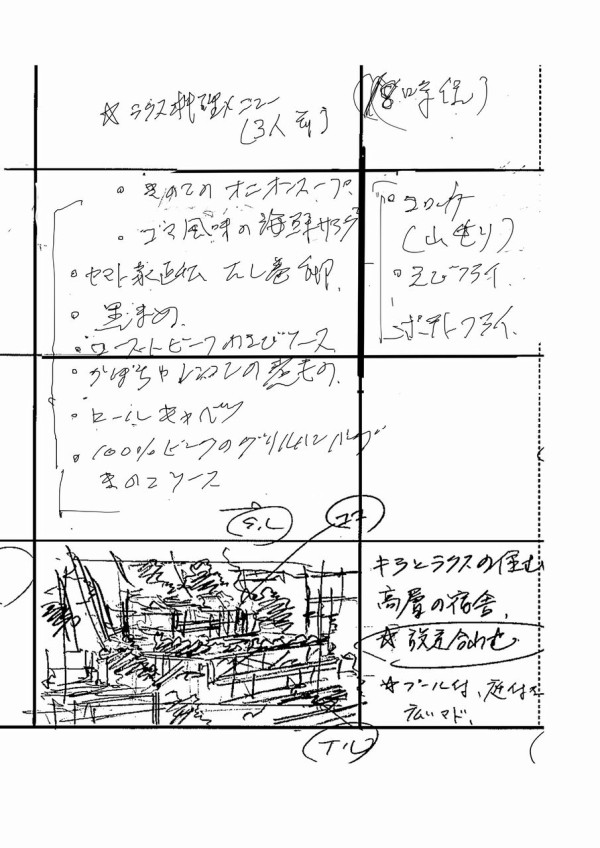 ☆ ラクス料理メニュー
(3人前)
(18時頃)
・きのこのオニオンスープ
・ゴマ風味の海鮮サラダ
・ヤマト家直伝 だし巻卵
・黒まめ
・ローストビーフわさびソース
・かぼちゃとレモンの煮もの
・ロールキャベツ
・100%ビーフのグリルハンバーグ
きのこソース
・コロッケ
(山もり)
・えびフライ
ポテトフライ
キラとラクスの住む
高層の宿舎、
☆ 設定合わせ
☆ プール付、庭付き
広いマド、